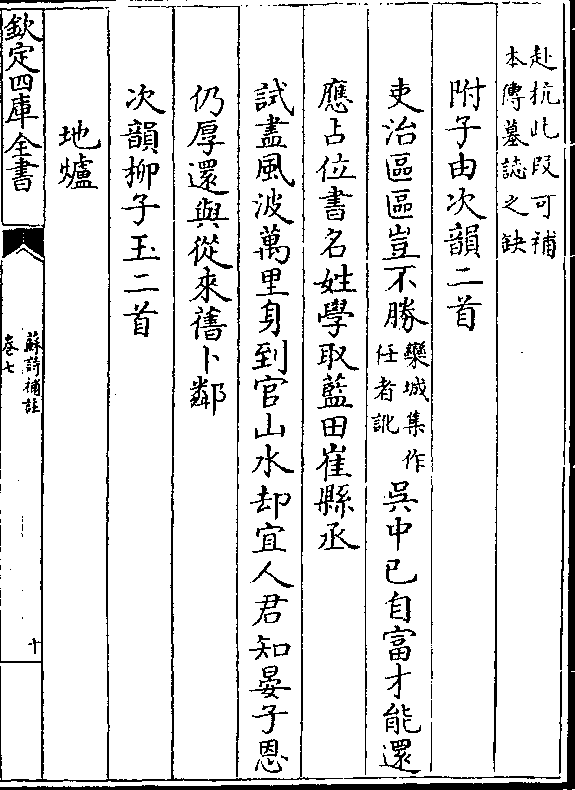 赴杭此段可補
本傳墓誌之缺
附子由次韻二首
吏治區區豈不勝欒城集作任者訛吳中已自富才能還
應占位書名姓學取藍田崔縣丞
試盡風波萬里身到官山水却宜人君知晏子恩
仍厚還與從來舊卜鄰
次韻柳子玉二首
地爐
欽定四庫全書
蘇詩補註
卷七
十